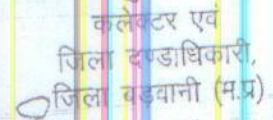 कलेक्टर एवं
जिला दण्डाधिकारी,
जिला बड़वानी (म.प्र)